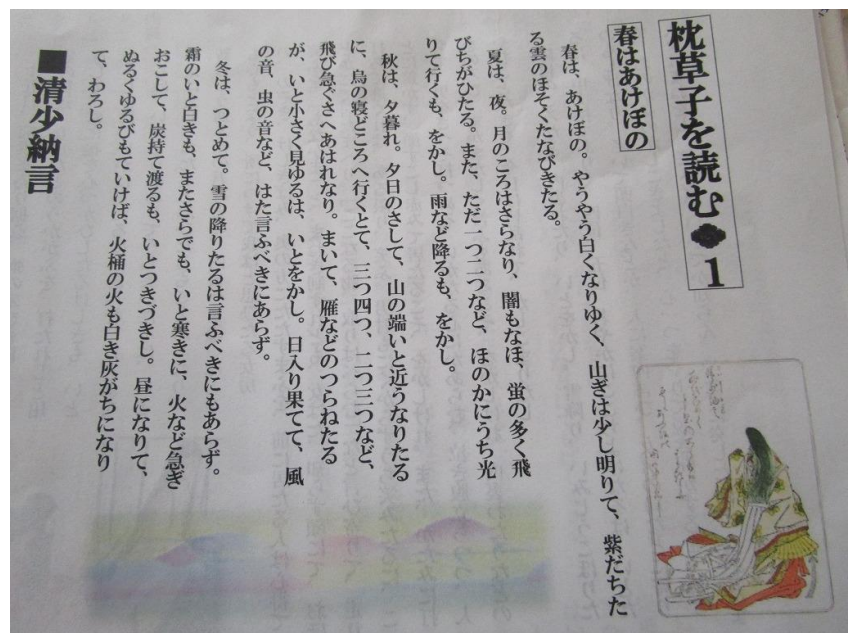 枕草子を読む 1
春はあけぼの
春は、あけぼの。やうやう白くなりゆく、山ぎは少し明りて、紫だちた
る雲のほそくたなびきたる。
夏は、夜。月のころはさらなり、闇もなほ、蛍の多く飛
びちがひたる。また、ただ一つ二つなど、ほのかにうち光
りて行くも、をかし。雨など降るも、をかし。
秋は、夕暮れ。夕日のさして、山の端いと近うなりたる
に、烏の寝どころへ行くとて、三つ四つ、二つ三つなど、
飛び急ぐさへあはれなり。まいて、雁などのつらねたる
が、いと小さく見ゆるは、いとをかし。日入り果てて、風
の音、虫の音など、はた言ふべきにあらず。
冬は、つとめて。雪の降りたるは言ふべきにもあらず。
霜のいと白きも、またさらでも、いと寒きに、火など急ぎ
おこして、炭持て渡るも、いとつきづきし。昼になりて、
ぬるくゆるびもていけば、火桶の火も白き灰がちになり
て、わろし。
■清少納言